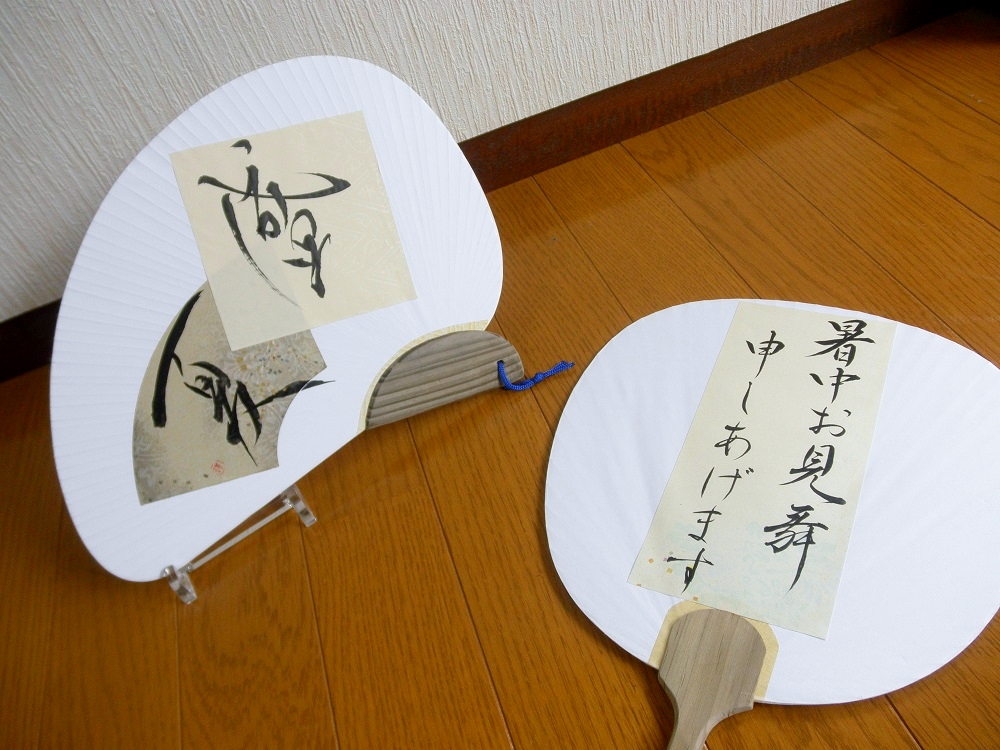 夏
暑中お見舞
申しあげます